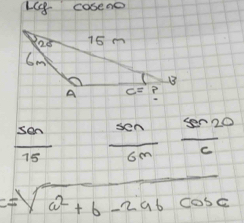 Ley coseno
20 15 m
6m
A c= ? B
sen sen sen 20
15 6m c
c=√a² + b - 2ab cos c